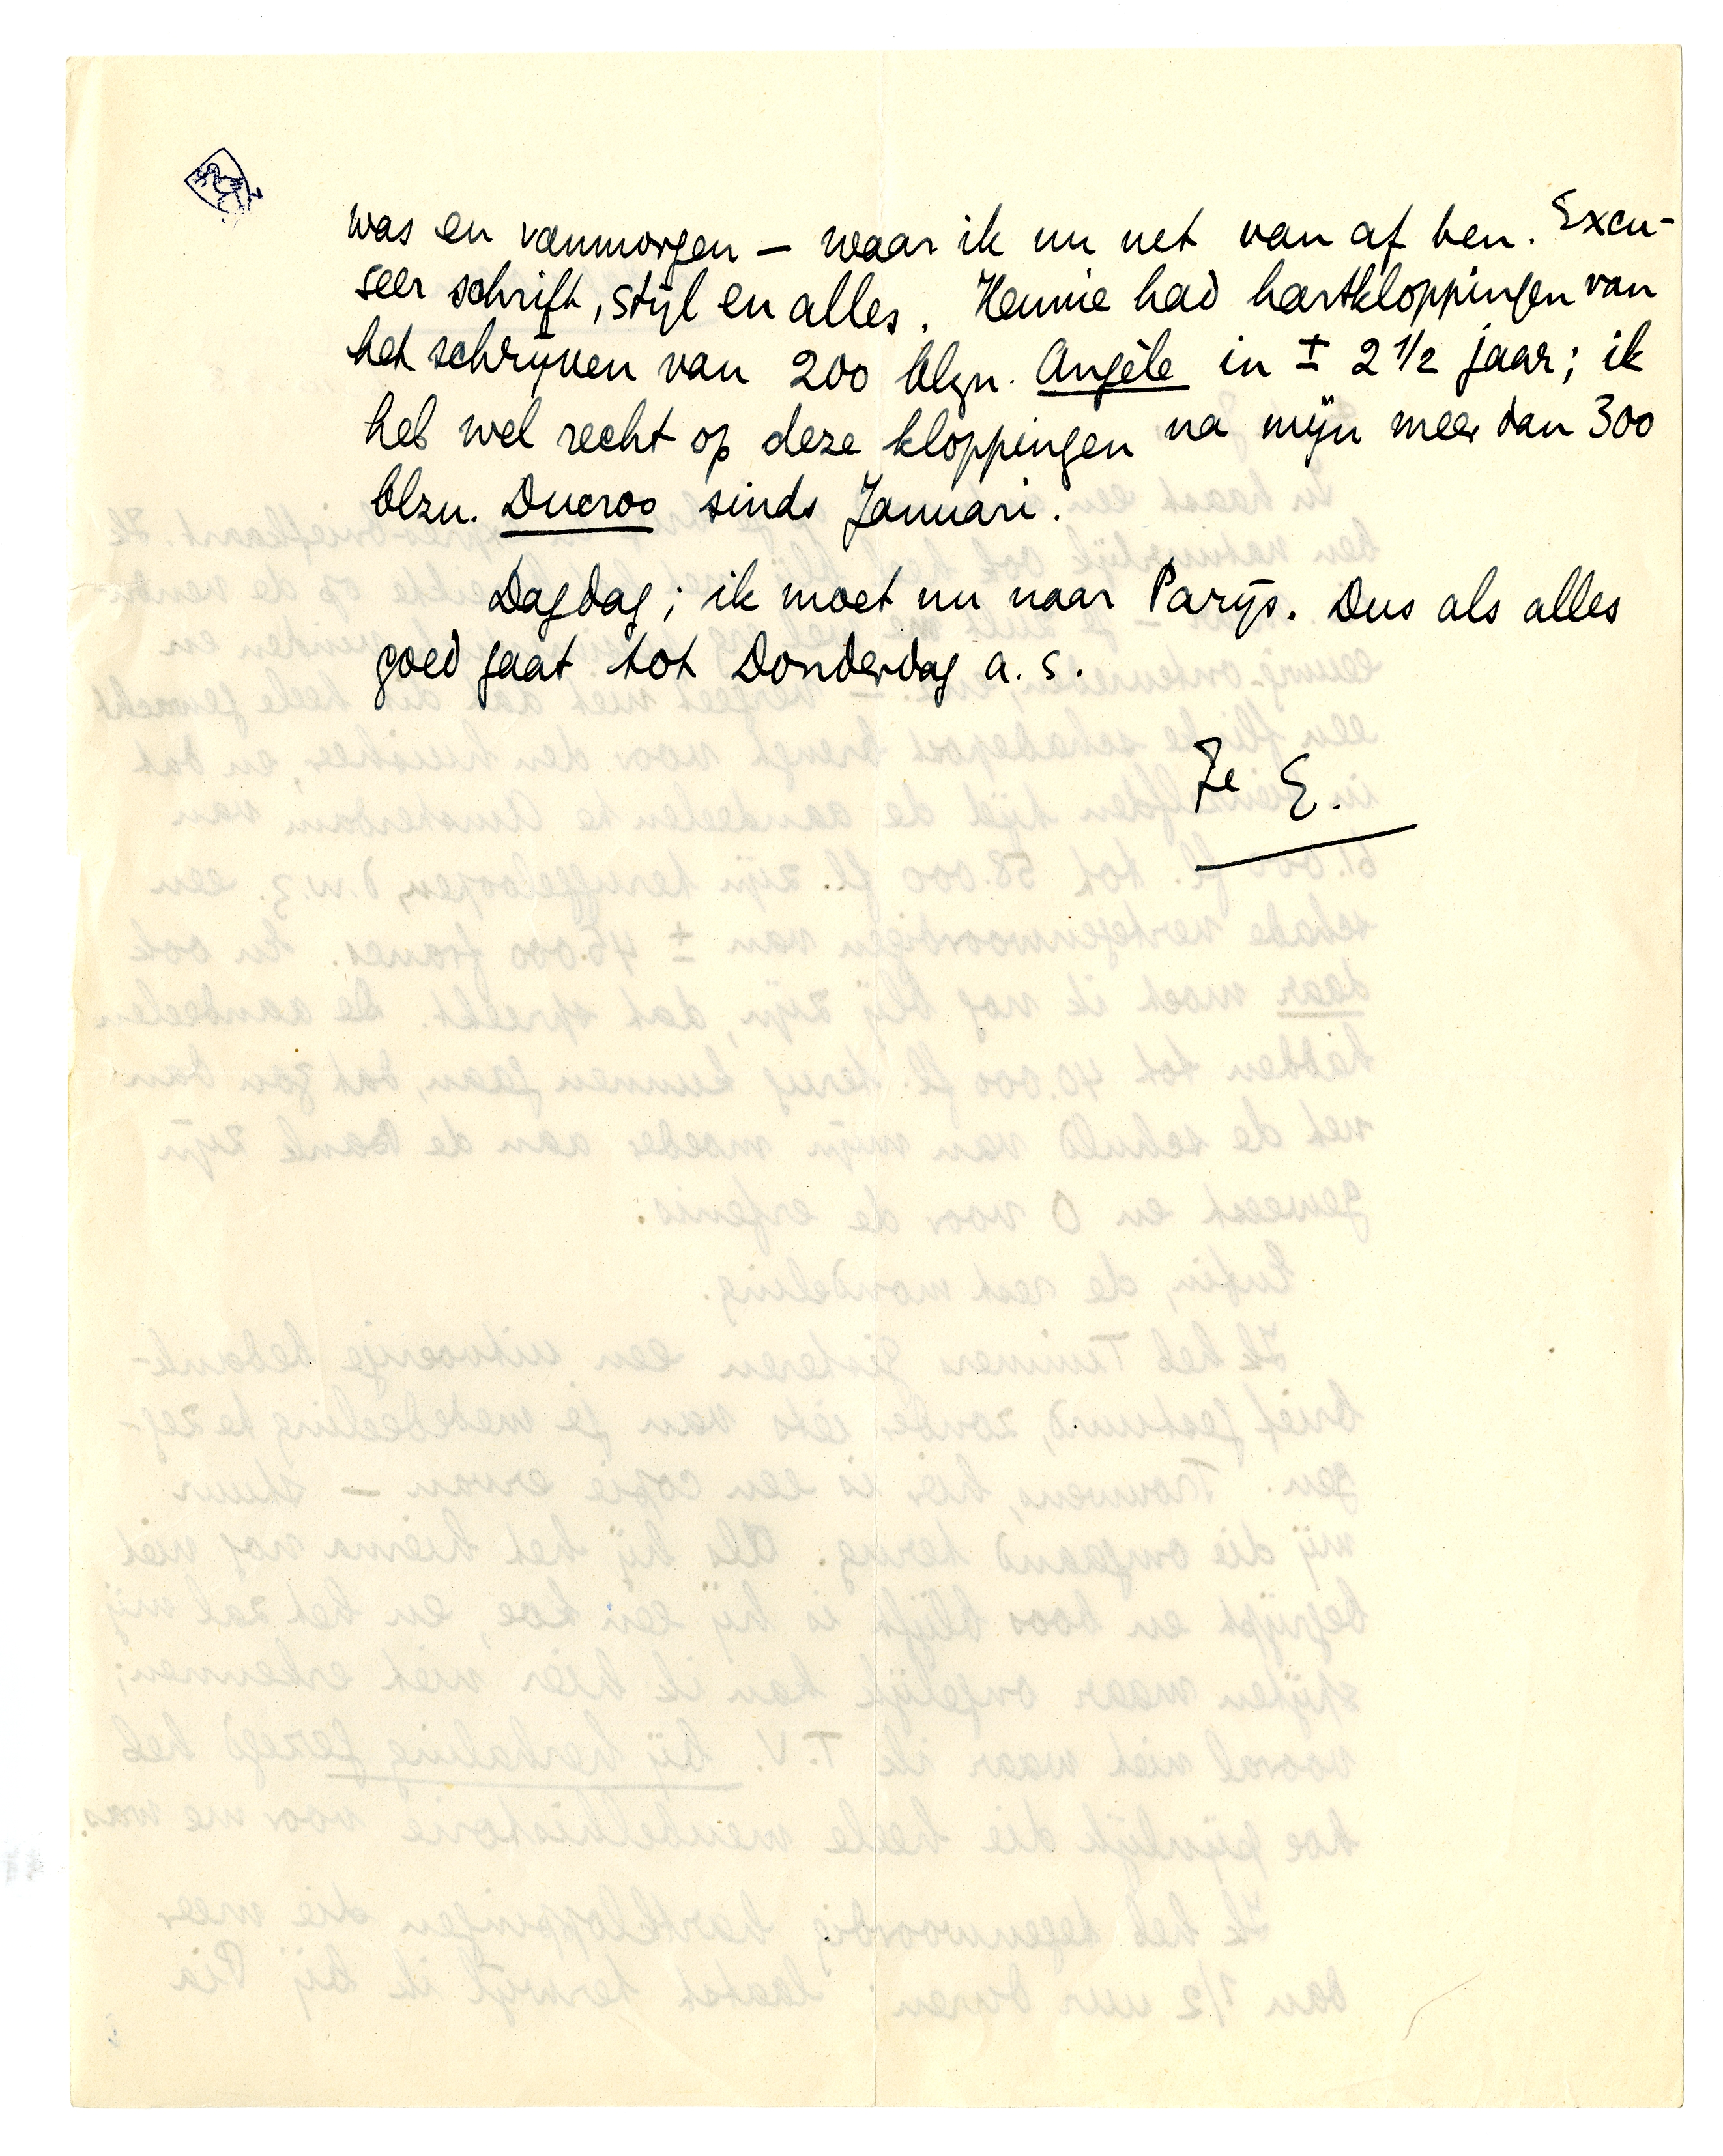 was en vanmorgen — waar ik nu net van af ben. Excu-
seer schrift, stijl en alles. Hennie had hartkloppingen van
het schrijven van 200 blzn. Angèle in ± 2 1/2 jaar; ik
heb wel recht op deze kloppingen na mijn meer dan 300
blzn. Ducroo sinds Januari.
Dagdag; ik moet nu naar Parijs. Dus als alles
goed gaat tot Donderdag a.s.
Je E.